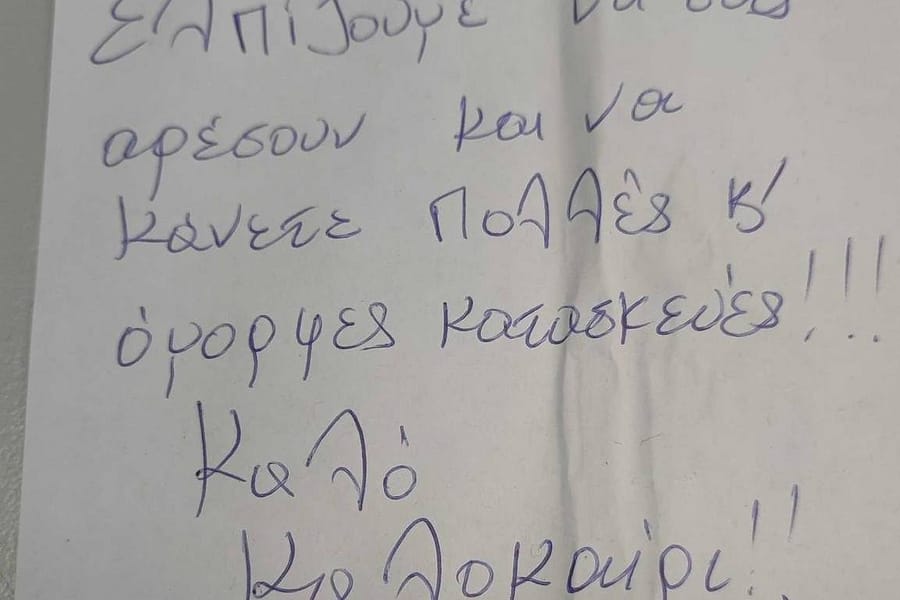 Ελπίζουμε να σας
αρέσουν και να
κάνετε πολλές κ'
όμορφες κατασκευές!!!
Καλό
Καλοκαίρι!!